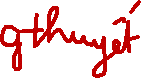 gthuyết